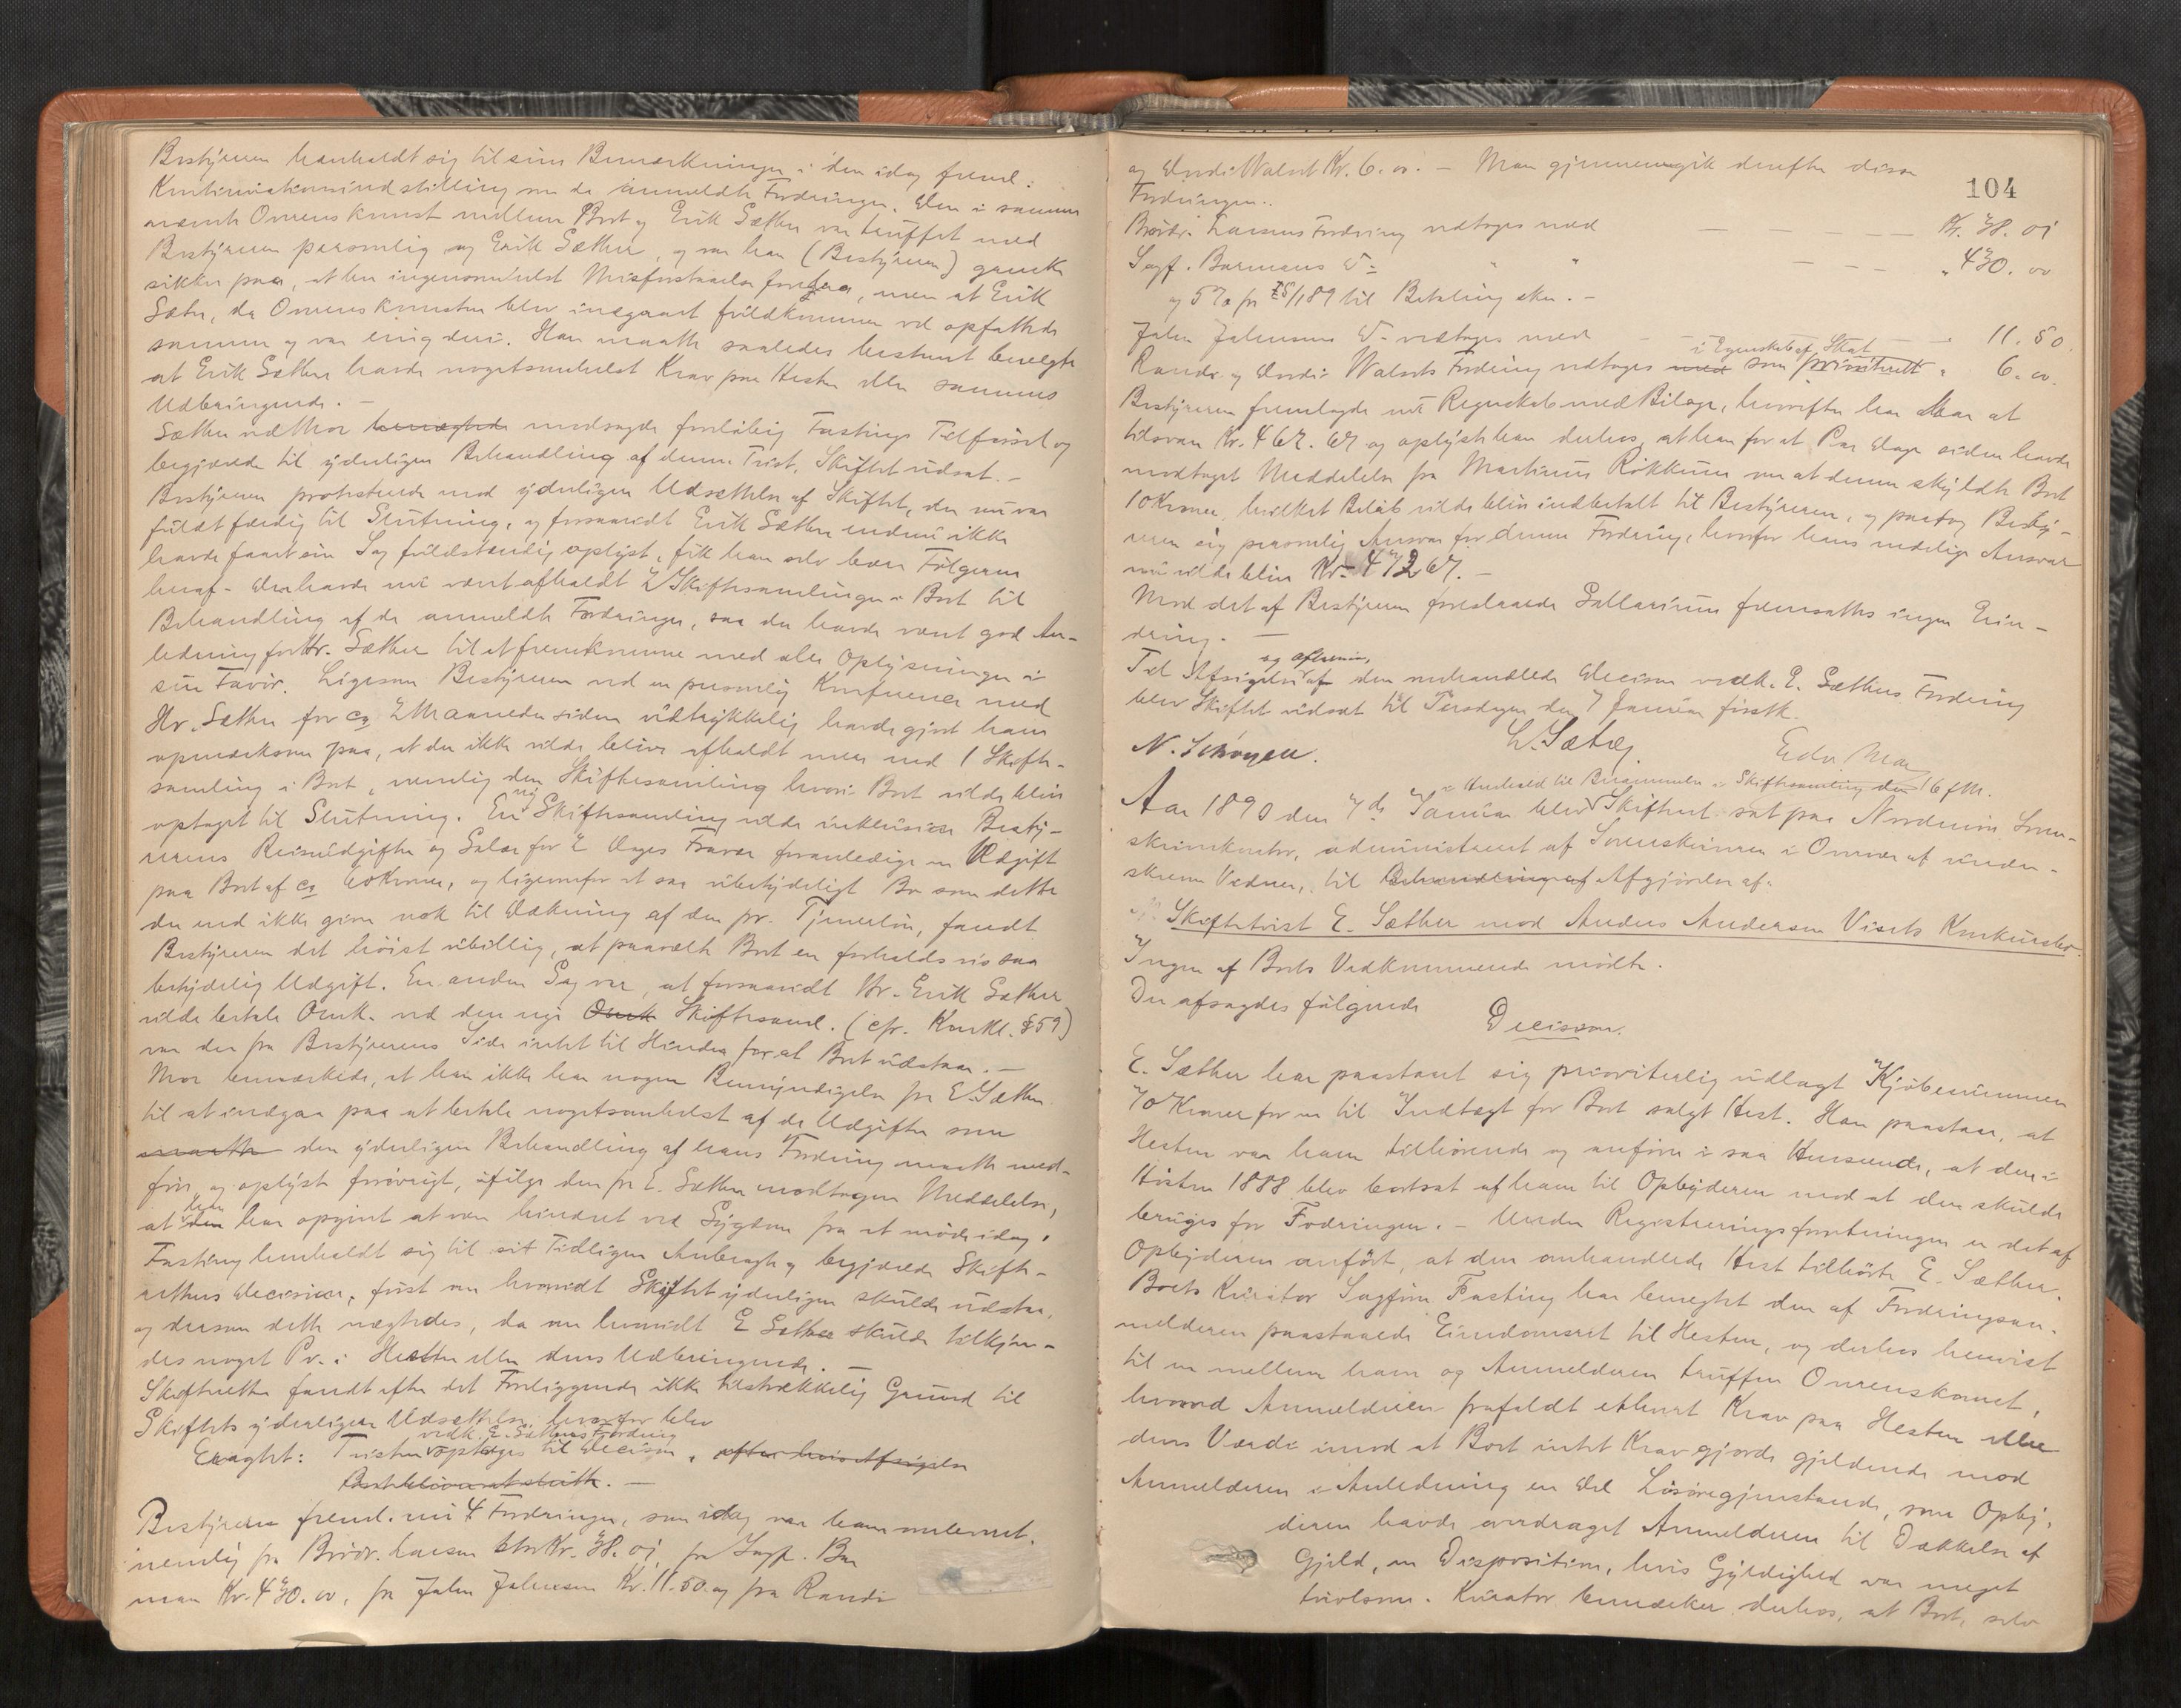 Bestyreren henholdt sig til sine Bemærkninger i den idag freml.
Kontinuationsindstilling om de anmeldte Fordringer. Den i samme
nævnte Overenskomst mellem Boet og Erik Sæther var truffet med
Bestyreren personlig og Erik Sæther, og var han (Bestyreren) ganske
sikker paa, at her ingensomhelst Misforstaaelse foreligger, men at Erik
Sæter, da Overenskomsten blev indgaaet fuldkommen vel opfattede
samme og var enig deri. Han maatte saaledes bestemt benegte
at Erik Sæther havde nogetsomhelst Krav paa Hesten eller sammes
Udbringende. –
Sæther ved Mor benegtede modsagde foreløbig Fastings Tilførsel og
begjærede til yderligere Behandling af denne Tvist, Skiftet udsat. –
Bestyreren protesterede mod yderligere Udsættelse af Skiftet, der nu var
fuldt færdig til Slutning, og forsaavidt Erik Sæther endnu ikke
havde faaet sin Sag fuldstændig oplyst, fik han selv bære Følgerne
heraf. Der havde nu været afholdt 2 Skiftesamlinger i Boet til
Behandling af de anmeldte Fordringer, saa der havde været god An-
ledning for Hr. Sæther til at fremkomme med alle Oplysninger i
sin Favør. Ligesom Bestyreren ved en personlig Konference med
Hr. Sæther for ca 2 Maaneder siden udtrykkelig havde gjort ham
opmerksom paa, at der ikke vilde blive afholdt mere end 1 Skifte-
samling i Boet, nemlig den Skiftesamling hvori Boet vilde blive
optaget til Slutning. En ny Skiftesamling vilde inklusive Besty-
rerens Reiseudgifter og Salær for 2 Dages Fravær foranledige en Udgift
paa Boet af ca 60 Kroner, og ligeoverfor et saa ubetydeligt Bo som dette
der end ikke giver nok til Dækning af den pr. Tjenerløn, fandt
Bestyreren det høist ubillig, at paavælte Boet en forholdsvis saa
betydelig Udgift. En anden Sag var, at forsaavidt Hr. Erik Sæther
vilde betale Omk. ved den nye Omk Skiftesaml. (cfr. Konkl. § 59)
var der fra Bestyrerens Side intet til Hinder for at Boet udstaar. –
Mor bemærkede, at han ikke har nogen Bemyndigelse fra E. Sæther
til at indgaa paa at betale nogetsomhelst af de Udgifter som
maatte den yderligere Behandling af hans Fordring maatte med-
føre og oplyste forøvrigt, ifølge den fra E. Sæther modtagne Meddelelse,
at denne har opgivet at være hindret ved Sygdom fra at møde idag.
Fasting henholdt sig til sit Tidligere Anbragte og begjærede Skifte-
rettens Decision, først om hvorvidt Skiftet yderligere skulde udstaa,
og dersom dette negtedes, da om hvorvidt E Sæther skulde tilkjen-
des noget Pr. i Hesten eller dens Udbringende. –
Skifteretten fandt efter det Foreliggende ikke tilstrækkelig Grund til
Skiftets yderligere Udsættelse, hvorfor blev
vedk. E. Sæthers Fordring
Eragtet: Tvisten optages til Decision, efter hvis Afsigelse
Boet bliver at slutte. –
Bestyreren freml. nu 4 Fordringer, som idag var ham overleveret.
nemlig fra Brødr. Larsen stor Kr. 38.01, fra Sagf. Bar
man Kr. 430.00, fra John Johnsen Kr. 11.50 og fra Randi
104
og Endi Walset Kr. 6.00. – Man gjennemgik derefter disse
Fordringer.
Brødr. Larsens Fordring vedtoges med – – – – – Kr. 38.01
Sagf. Barmans D= " " – – – " 430.00
og 5% fra 25/1 89 til Betaling sker. –
John Johnsens D= vedtoges med – – – " 11.50
i Egenskab af Skat
Randi og Endi Walsets Fordring vedtoges med som prioriteret " 6.00
Bestyreren fremlagde nu Regnskab med Bilage, hvorefter han har at
tilsvare Kr. 462.67 og oplyste han derhos, at han for et Par Dage siden havde
modtaget Meddelelse fra Martinus Rökkum om at denne skyldte Boet
10 Kroner, hvilket Beløb vilde blive indbetalt til Bestyreren, og paatog Besty-
reren sig personlig Ansvar for denne Fordring, hvorfor hans endelige Ansvar
nu vilde blive Kr. 472.67. –
Mod det af Bestyreren foreslaaede Sallarium fremsattes ingen Erin-
dring. –
Til Afsigelse af den omhandlede Decision vedk. E. Sæthers Fordring
blev Skiftet udsat til Tirsdagen den 7 Januar førstk.
N. Schøyen. L. Sæter Edv. Mor
i Henhold til Berammelse i Skiftesamling den 16 f.M.
Aar 1890 den 7de Januar blev Skifteret sat paa Nordmøre Soren-
skriverkontor, administreret af Sorenskriveren i Overvær af under-
skrevne Vidner, til Behandling af Afgjørelse af:
Skiftetvist E. Sæther mod Anders Andersen Visets Konkursbo.
Ingen af Boets Vedkommende mødte.
Der afsagdes følgende
Decision.
E. Sæther har paastaaet sig prioriterlig udlagt Kjøbesummen
70 Kroner for en til Indtægt for Boet solgt Hest. Han paastaar, at
Hesten var ham tilhørende og anfører i saa Henseende, at den i
Høsten 1888 blev bortsat af ham til Opbyderen mod at den skulde
bruges for Fodringen. – Under Registreringsforretningen er det af
Opbyderen anført, at den omhandlede Hest tilhørte E. Sæther.
Boets Kurator Sagfører Fasting har benegtet den af Fordringsan-
melderen paastaaede Eiendomsret til Hesten, og derhos henvist
til en mellem ham og Anmelderen truffen Overenskomst,
hvorved Anmelderen frafaldt ethvert Krav paa Hesten eller
dens Værdi imod at Boet intet Krav gjorde gjeldende mod
Anmelderen i Anledning en Del Løsøregjenstande, som Opby-
deren havde overdraget Anmelderen til Dækkelse af
Gjeld, en Disposition, hvis Gyldighed var meget
tvivlsom. Kurator bemærker derhos, at Boet, selv